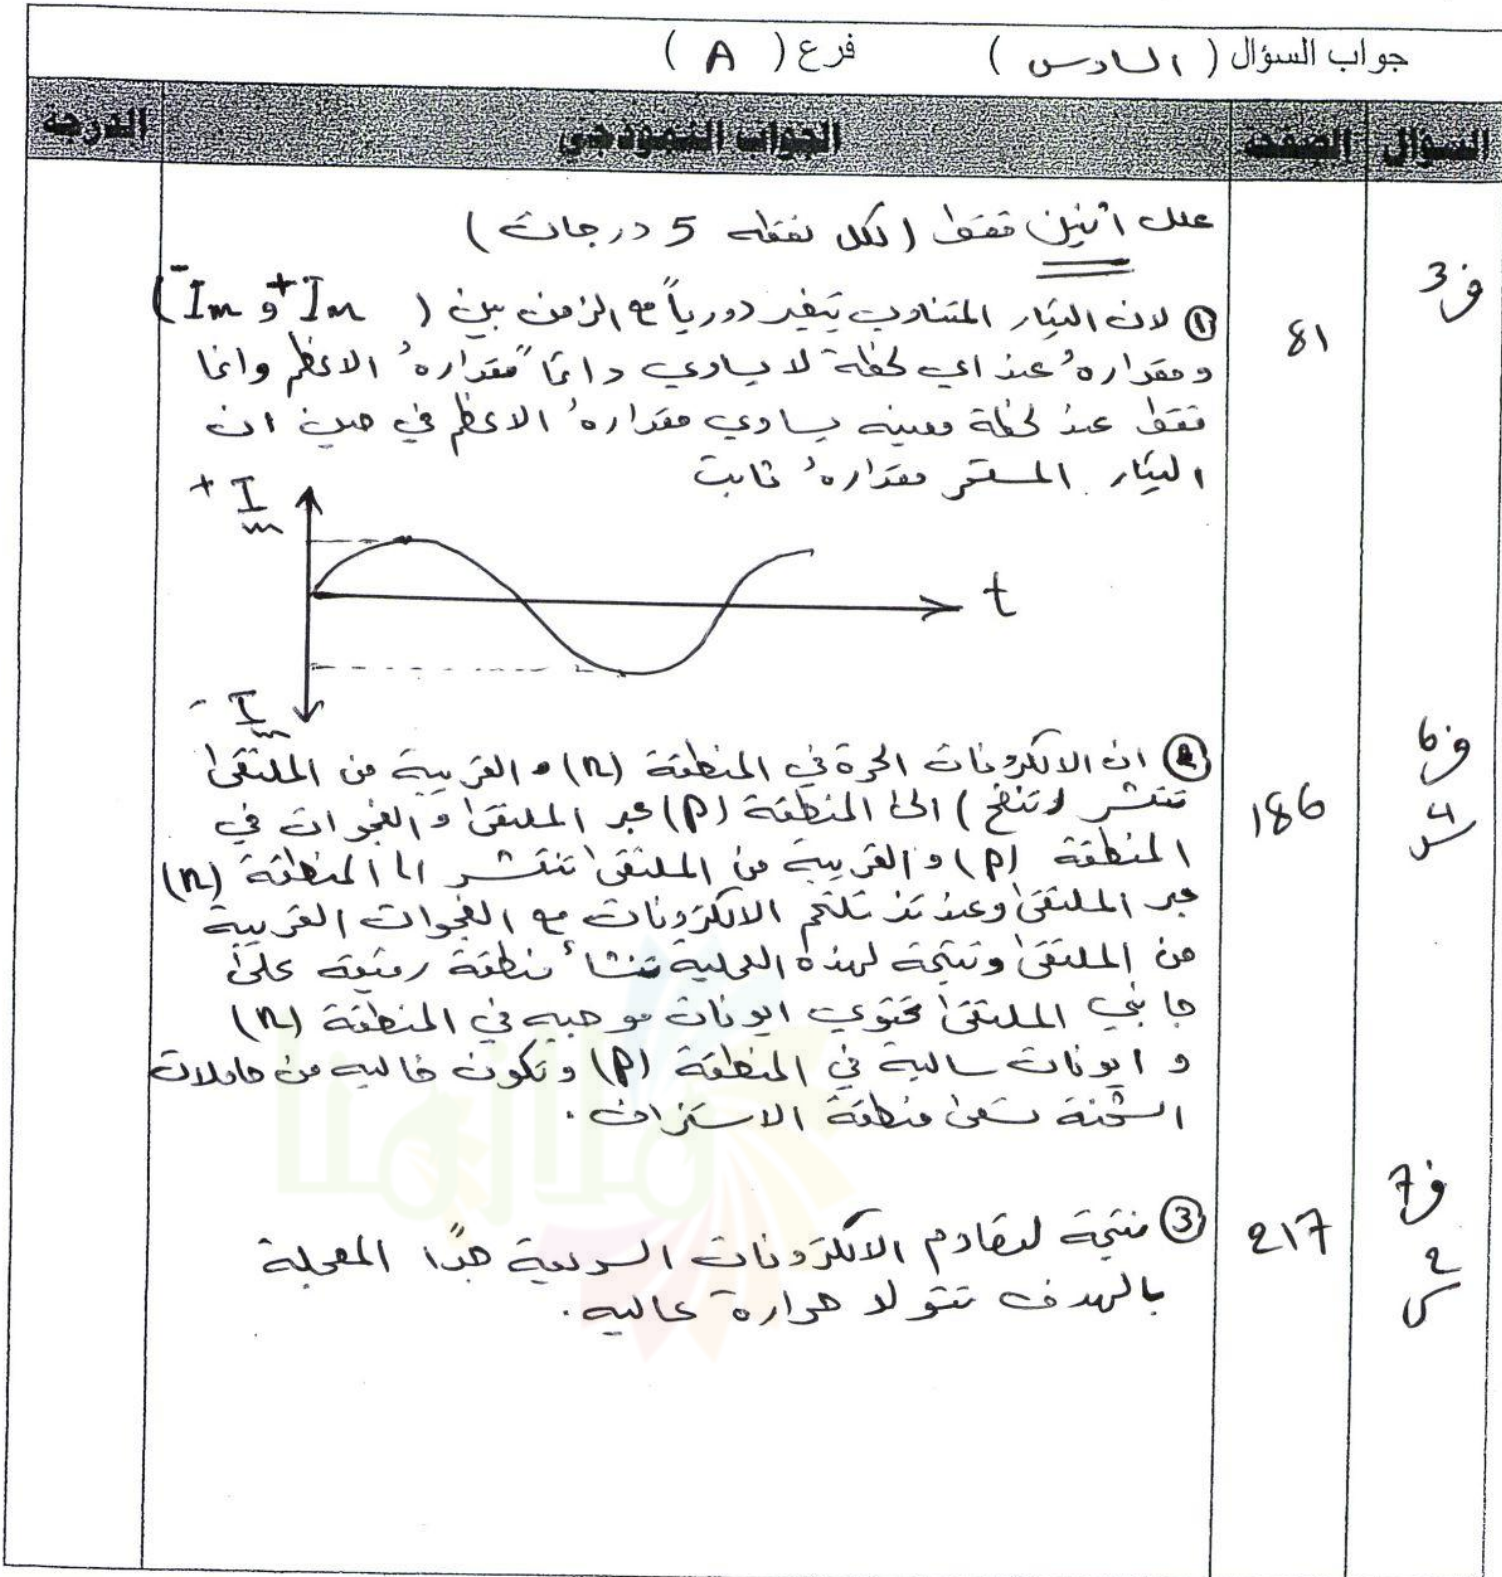 جواب السؤال ( السادس ) فرع ( A )
السؤال الصفحة الجواب النموذجي الدرجة
علل اثنين فقط ( لكل نقطه 5 درجات )
ف3
81
① لان التيار المتناوب يتغير دورياً مع الزمن بين ( +Im و -Im )
ومقداره عند اي لحظة لا يساوي دائماً مقداره الاعظم وانما
فقط عند لحظة معينه يساوي مقداره الاعظم في حين ان
التيار المستمر مقداره ثابت
+ Im
t
- Im
ف6
س4
186
② ان الالكترونات الحرة في المنطقة (n) و القريبة من الملتقى
تنتشر (تنضح) الى المنطقة (p) عبر الملتقى و الفجوات في
المنطقة (p) و القريبة من الملتقى تنتشر الى المنطقة (n)
عبر الملتقى وعندئذ تلتحم الالكترونات مع الفجوات القريبة
من الملتقى ونتيجة لهذه العملية تنشأ منطقة رقيقة على
جانبي الملتقى تحتوي ايونات موجبه في المنطقة (n)
و ايونات سالبة في المنطقة (p) وتكون خاليه من حاملات
الشحنة تسمى منطقة الاستنزاف .
ف7
س2
217
③ نتيجة لتصادم الالكترونات السريعة جداً المعجلة
بالهدف تتولد حرارة عاليه .
ملازمنا